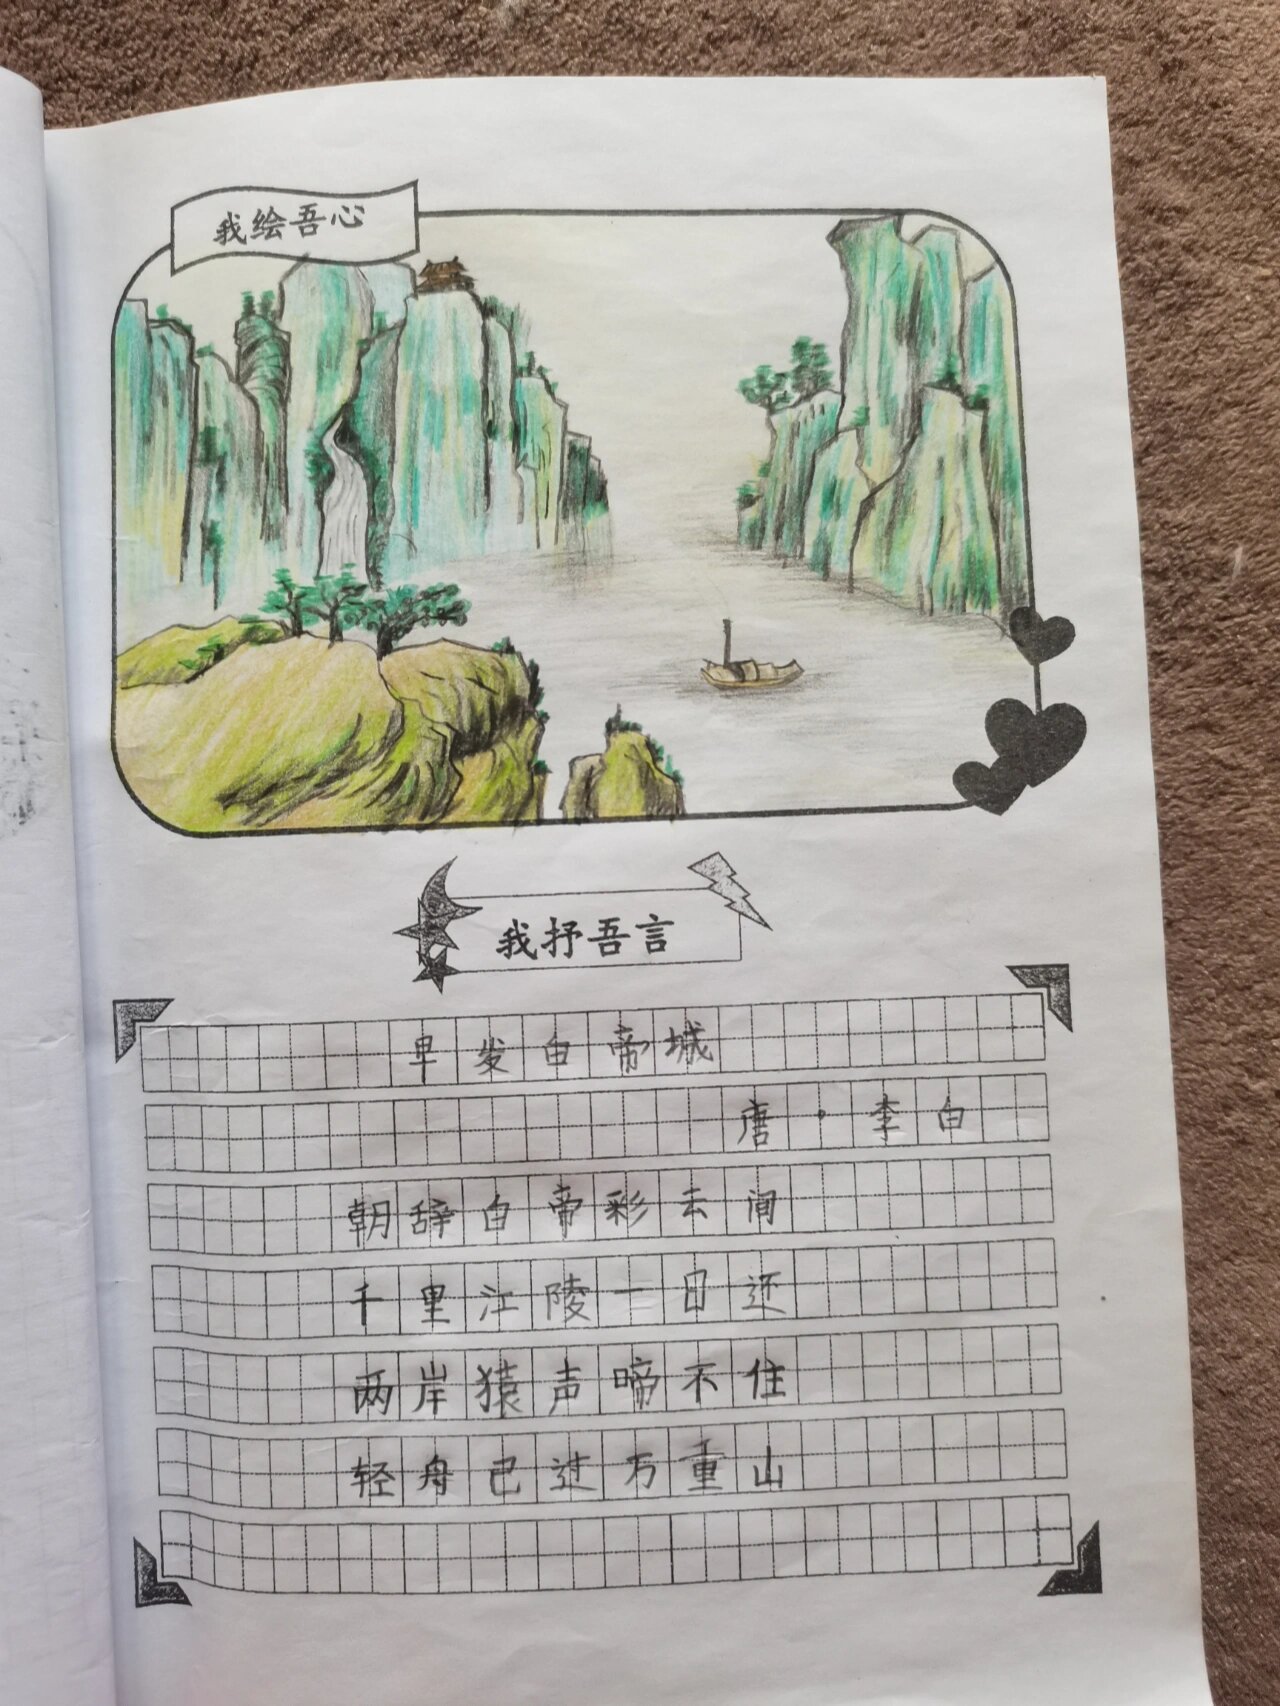 我绘吾心
我抒吾言
早发白帝城
唐·李白
朝辞白帝彩云间
千里江陵一日还
两岸猿声啼不住
轻舟已过万重山